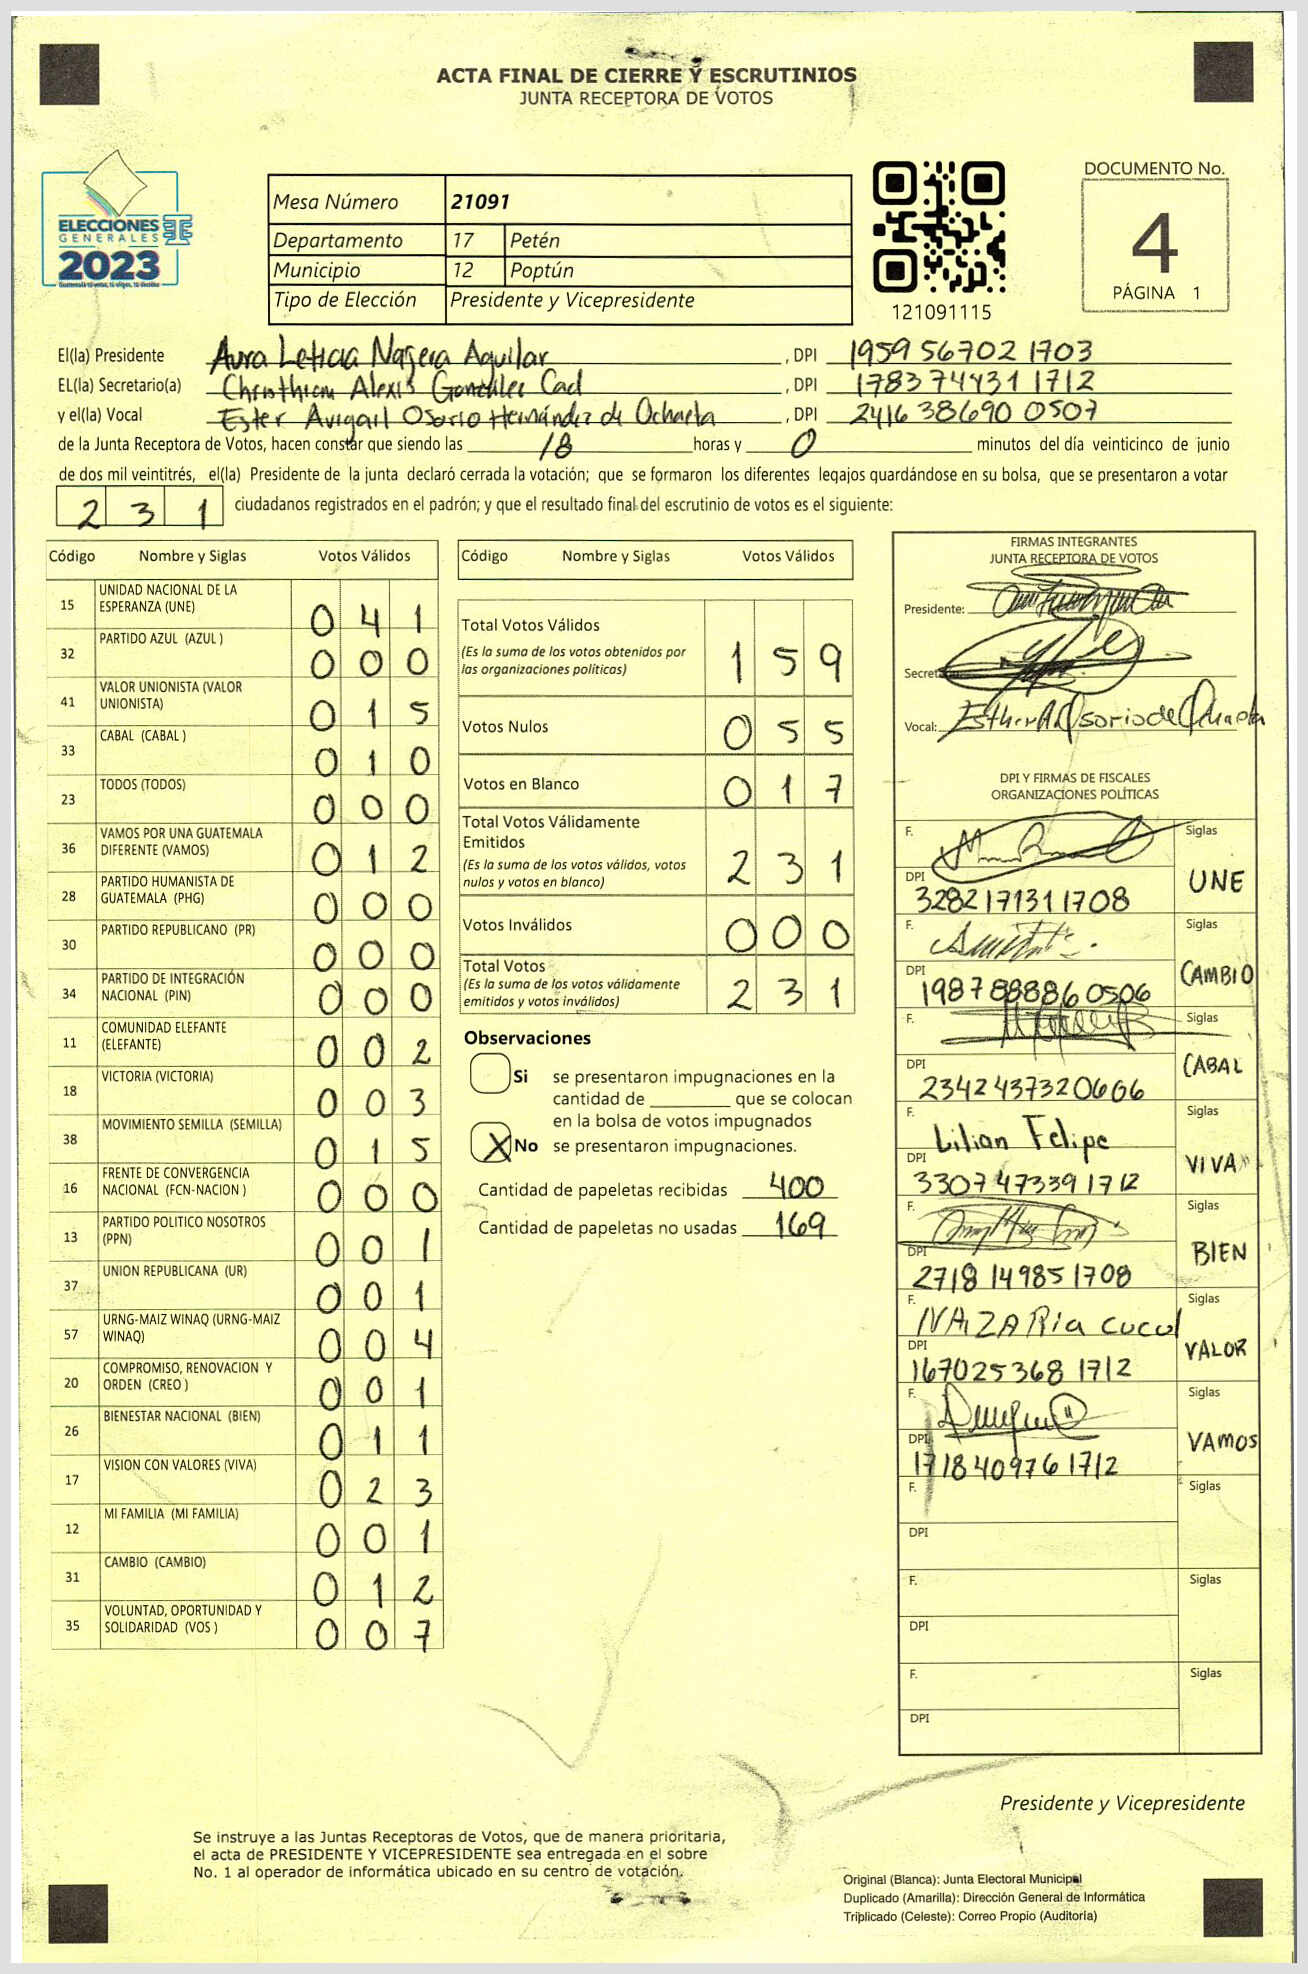 ACTA FINAL DE CIERRE Y ESCRUTINIOS
JUNTA RECEPTORA DE VOTOS
ELECCIONES
GENERALES
2023
Mesa Número 21091
Departamento 17 Petén
Municipio 12 Poptún
Tipo de Elección Presidente y Vicepresidente
121091115
DOCUMENTO No.
4
PÁGINA 1
El(la) Presidente Aura Leticia Najera Aguilar, DPI 1959 56702 1703
EL(la) Secretario(a) Christhiam Alexis González Cad, DPI 1783 74431 1712
y el(la) Vocal Ester Avigail Osorio Hernández de Ochaeta, DPI 2416 38690 0507
de la Junta Receptora de Votos, hacen constar que siendo las 18 horas y 0 minutos del día veinticinco de junio
de dos mil veintitrés, el(la) Presidente de la junta declaró cerrada la votación; que se formaron los diferentes legajos guardándose en su bolsa, que se presentaron a votar
231 ciudadanos registrados en el padrón; y que el resultado final del escrutinio de votos es el siguiente:
Código Nombre y Siglas Votos Válidos
15 UNIDAD NACIONAL DE LA ESPERANZA (UNE) 041
32 PARTIDO AZUL (AZUL ) 000
41 VALOR UNIONISTA (VALOR UNIONISTA) 015
33 CABAL (CABAL ) 010
23 TODOS (TODOS) 000
36 VAMOS POR UNA GUATEMALA DIFERENTE (VAMOS) 012
28 PARTIDO HUMANISTA DE GUATEMALA (PHG) 000
30 PARTIDO REPUBLICANO (PR) 000
34 PARTIDO DE INTEGRACIÓN NACIONAL (PIN) 000
11 COMUNIDAD ELEFANTE (ELEFANTE) 002
18 VICTORIA (VICTORIA) 003
38 MOVIMIENTO SEMILLA (SEMILLA) 015
16 FRENTE DE CONVERGENCIA NACIONAL (FCN-NACION ) 000
13 PARTIDO POLITICO NOSOTROS (PPN) 001
37 UNION REPUBLICANA (UR) 001
57 URNG-MAIZ WINAQ (URNG-MAIZ WINAQ) 004
20 COMPROMISO, RENOVACION Y ORDEN (CREO ) 001
26 BIENESTAR NACIONAL (BIEN) 011
17 VISION CON VALORES (VIVA) 023
12 MI FAMILIA (MI FAMILIA) 001
31 CAMBIO (CAMBIO) 012
35 VOLUNTAD, OPORTUNIDAD Y SOLIDARIDAD (VOS ) 007
Código Nombre y Siglas Votos Válidos
Total Votos Válidos 159
(Es la suma de los votos obtenidos por
las organizaciones políticas)
Votos Nulos 055
Votos en Blanco 017
Total Votos Válidamente
Emitidos 231
(Es la suma de los votos válidos, votos
nulos y votos en blanco)
Votos Inválidos 000
Total Votos 231
(Es la suma de los votos válidamente
emitidos y votos inválidos)
Observaciones
Si se presentaron impugnaciones en la
cantidad de ________ que se colocan
en la bolsa de votos impugnados
X No se presentaron impugnaciones.
Cantidad de papeletas recibidas 400
Cantidad de papeletas no usadas 169
FIRMAS INTEGRANTES
JUNTA RECEPTORA DE VOTOS
Presidente:
Vocal: Esther A. Osorio de Ochaeta
DPI Y FIRMAS DE FISCALES
ORGANIZACIONES POLÍTICAS
F. Siglas
DPI 3282171311708 UNE
F.
DPI 1987888860506 CAMBIO
F. Siglas
DPI 2342437320606 CABAL
F. Lilian Felipe Siglas
DPI 3307473391712 VIVA
F. Siglas
DPI 2718149851708 BIEN
F. NAZARia cucul Siglas
DPI 167025368 1712 VALOR
F. Siglas
DPI 1718409761712 VAMOS
F. Siglas
DPI
F. Siglas
DPI
F. Siglas
DPI
Presidente y Vicepresidente
Se instruye a las Juntas Receptoras de Votos, que de manera prioritaria,
el acta de PRESIDENTE Y VICEPRESIDENTE sea entregada en el sobre
No. 1 al operador de informática ubicado en su centro de votación.
Original (Blanca): Junta Electoral Municipal
Duplicado (Amarilla): Dirección General de Informática
Triplicado (Celeste): Correo Propio (Auditoría)